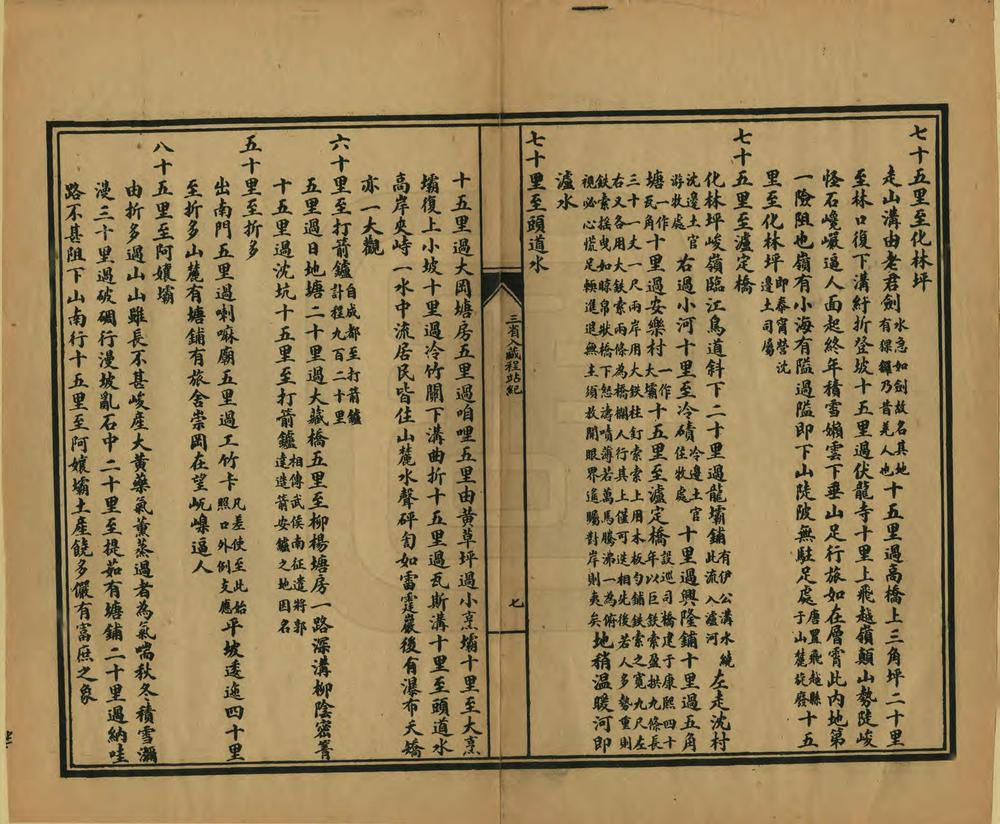 七十五里至化林坪
走山溝由老君劍水急如劍故名其地有猓玀乃昔羌人也十五里過高橋上三角坪二十里
至林口復下溝紆折登坡十五里過伏龍寺十里上飛越嶺顛山勢陡峻
怪石巉巖逼人面起終年積雪嬾雲下垂山足行旅如在層霄此內地第
一險阻也嶺有小海有隘過隘即下山陡陂無駐足處唐置飛越縣于山麓旋廢十五
里至化林坪即泰甯營沈邊土司屬
七十五里至瀘定橋
化林坪峻嶺臨江鳥道斜下二十里過龍壩鋪有伊公溝水繞此流入瀘河左走沈村
沈邊土官游牧處右過小河十里至冷磧冷邊土官住牧處十里過興隆鋪十里過五角
塘一作瓦角十里過安樂村一作大壩十五里至瀘定橋設巡司橋建于康熙四十年以巨鉄索盈拱九條長
三十一丈一尺兩岸用大鉄柱釘索索上用木板勻鋪鉄索之寬九尺左
右又各用大鉄索兩條為橋欄人行其上僅可迭相先後若人多勢重則
鉄索搖曳如晾帛狀橋下怒濤噴薄若萬馬騰沸一為俯
視必心慌足輭進退無主須放開眼界遙矚對岸則夷矣地稍溫暖河即
瀘水
七十里至頭道水
三省入藏程站紀
七
十五里過大岡塘房五里過咱哩五里由黄草坪過小烹壩十里至大烹
壩復上小坡十里過冷竹關下溝曲折十五里過瓦斯溝十里至頭道水
高岸夾峙一水中流居民皆住山麓水聲砰訇如雷霆巖後有瀑布天矯
亦一大觀
六十里至打箭鑪自成都至打箭鑪計程九百二十里
五里過日地塘二十里過大藏橋五里至柳楊塘房一路深溝柳陰密箐
十五里過沈坑十五里至打箭鑪相傳武侯南征遣將郭達造箭安鑪之地因名
五十里至折多
出南門五里過喇嘛廟五里過工竹卡凡差使至此始照口外例支應平坡逶迤四十里
至折多山麓有塘鋪有旅舍崇岡在望屼嵲逼人
八十五里至阿孃壩
由折多過山山雖長不甚峻產大黃藥氣薰蒸過者為氣喘秋冬積雪瀰
漫三十里過破碉行漫坡亂石中二十里至提茹有塘鋪二十里過納哇
路不甚阻下山南行十五里至阿孃壩土產饒多儼有富庶之象